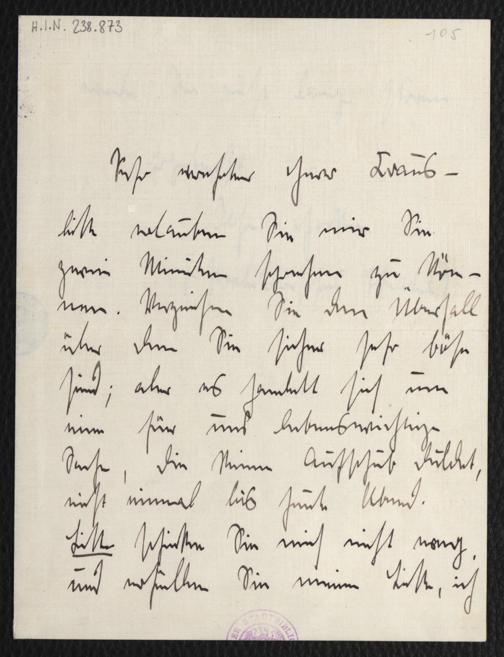 H.I.N. 238.873
-105
Sehr verehrter Herr Kraus –
bitte erlauben Sie mir Sie
zwei Minuten sprechen zu kön–
nen. Verzeihen Sie den Überfall
über den Sie sicher sehr böse
sind; aber es handelt sich um
eine für uns lebenswichtige
Sache, die keinen Aufschub duldet,
nicht einmal bis heute Abend.
Bitte schicken Sie mich nicht weg,
und erfüllen Sie meine Bitte, ich